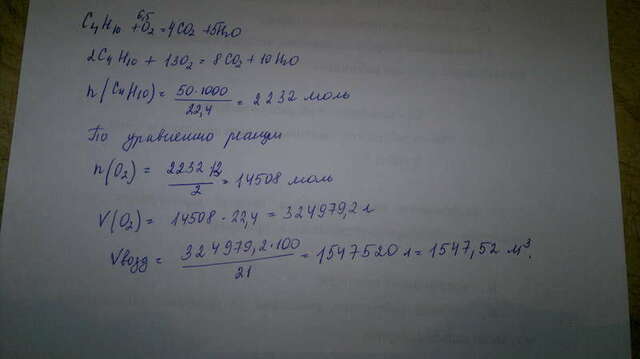 C₄H₁₀ + 6,5 O₂ = 4CO₂ + 5H₂O
2C₄H₁₀ + 13O₂ = 8CO₂ + 10H₂O
n(C₄H₁₀) = 50·1000 / 22,4 = 2232 моль
По уравнению реакции
n(O₂) = 2232·13 / 2 = 14508 моль
V(O₂) = 14508·22,4 = 324979,2 л
Vвозд = 324979,2·100 / 21 = 1547520 л = 1547,52 м³.